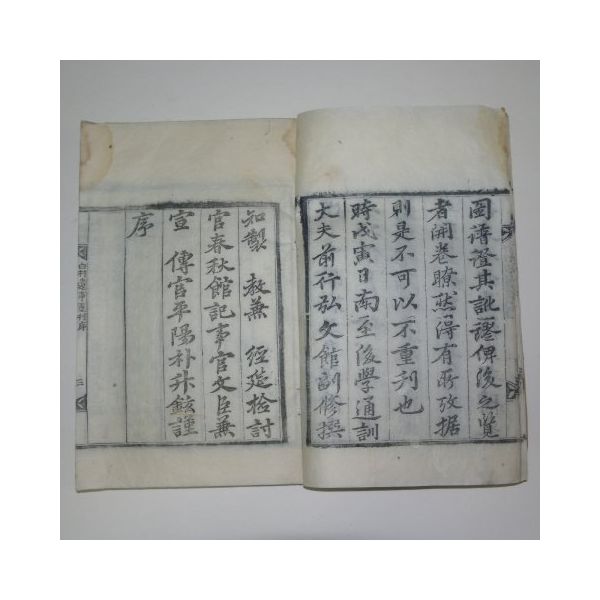 圖譜證其訛謬俾後之覽
者開卷瞭然得有所攷据
則是不可以不重刋也
時戊寅日南至後學通訓
大夫前行弘文館副修撰
知製 敎兼 經筵檢討
官春秋館記事官文臣兼
宣 傳官平陽朴升鉉謹
序